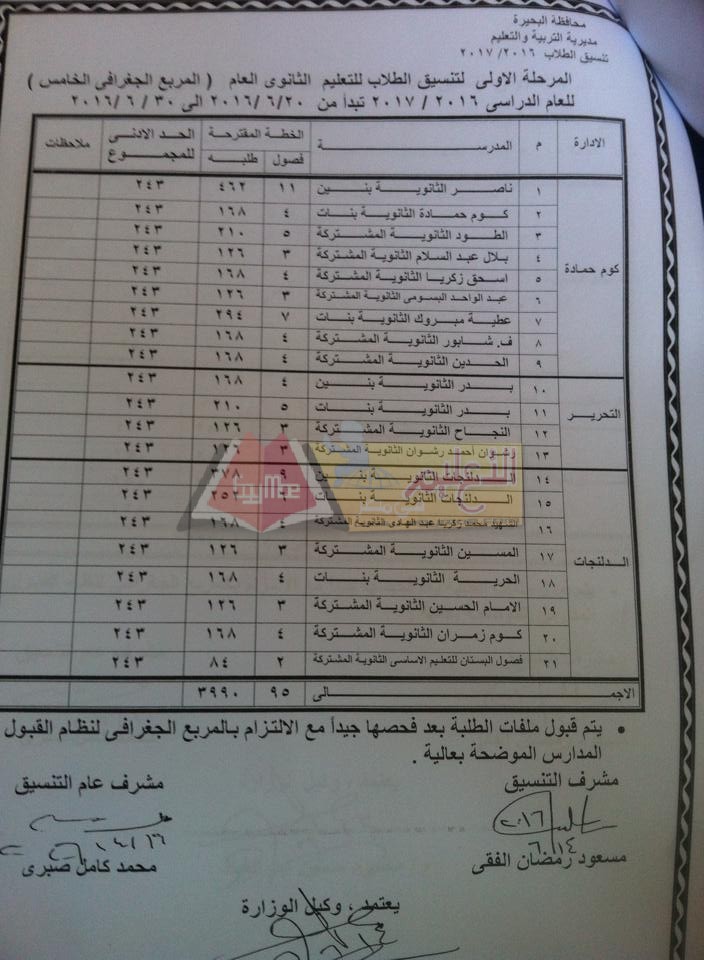 محافظة البحيرة
مديرية التربية والتعليم
تنسيق الطلاب ٢٠١٦/ ٢٠١٧
المرحلة الاولى لتنسيق الطلاب للتعليم الثانوى العام ( المربع الجغرافى الخامس )
للعام الدراسى ٢٠١٦ / ٢٠١٧ تبدأ من ٢٠١٦/٦/٢٠ الى ٣٠ / ٦ /٢٠١٦
الادارة م المدرسة الخطة المقترحة الحد الادنى للمجموع ملاحظات
فصول طلبه
كوم حمادة
١ ناصر الثانوية بنين ١١ ٤٦٢ ٢٤٣
٢ كوم حمادة الثانوية بنات ٤ ١٦٨ ٢٤٣
٣ الطود الثانوية المشتركة ٥ ٢١٠ ٢٤٣
٤ بلال عبد السلام الثانوية المشتركة ٣ ١٢٦ ٢٤٣
٥ اسحق زكريا الثانوية المشتركة ٤ ١٦٨ ٢٤٣
٦ عبد الواحد البسومى الثانوية المشتركة ٣ ١٢٦ ٢٤٣
٧ عطية مبروك الثانوية بنات ٧ ٢٩٤ ٢٤٣
٨ ف. شابور الثانوية المشتركة ٤ ١٦٨ ٢٤٣
٩ الحدين الثانوية المشتركة ٤ ١٦٨ ٢٤٣
التحرير
١٠ بدر الثانوية بنين ٤ ١٦٨ ٢٤٣
١١ بدر الثانوية بنات ٥ ٢١٠ ٢٤٣
١٢ النجاح الثانوية المشتركة ٣ ١٢٦ ٢٤٣
١٣ رشوان أحمد رشوان الثانوية المشتركة ٣ ١٢٦ ٢٤٣
الدلنجات
١٤ الدلنجات الثانوية بنين ٩ ٣٧٨ ٢٤٣
١٥ الدلنجات الثانوية بنات ٢٥٢ ٢٤٣
١٦ الشهيد محمد زكريا عبد الهادى الثانوية المشتركة ٤ ١٦٨ ٢٤٣
١٧ المسين الثانوية المشتركة ٣ ١٢٦ ٢٤٣
١٨ الحرية الثانوية بنات ٤ ١٦٨ ٢٤٣
١٩ الامام الحسين الثانوية المشتركة ٣ ١٢٦ ٢٤٣
٢٠ كوم زمران الثانوية المشتركة ٤ ١٦٨ ٢٤٣
٢١ فصول البستان للتعليم الاساسى الثانوية المشتركة ٢ ٨٤ ٢٤٣
الاجمالى ٩٥ ٣٩٩٠
• يتم قبول ملفات الطلبة بعد فحصها جيداً مع الالتزام بالمربع الجغرافى لنظام القبول
المدارس الموضحة بعالية .
مشرف التنسيق مشرف عام التنسيق
٢٠١٦
٦/١٤
مسعود رمضان الفقى محمد كامل صبرى
يعتمد ، وكيل الوزارة